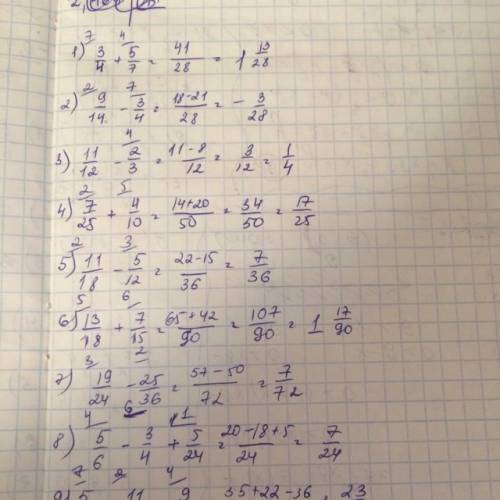 1) 3/4 + 5/7 = 41/28 = 1 13/28
2) 9/14 - 3/4 = 18-21/28 = - 3/28
3) 11/12 - 2/3 = 11-8/12 = 3/12 = 1/4
4) 7/25 + 4/10 = 14+20/50 = 34/50 = 17/25
5) 11/18 - 5/12 = 22-15/36 = 7/36
6) 13/18 + 7/15 = 65+42/90 = 107/90 = 1 17/90
7) 19/24 - 25/36 = 57-50/72 = 7/72
8) 5/6 - 3/4 + 5/24 = 20-18+5/24 = 7/24
9) 5 11 9 55+22-36 23